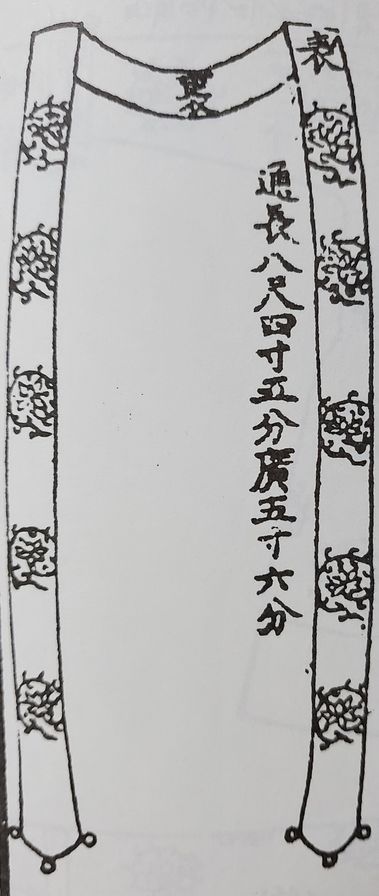 表
通長八尺四寸五分廣五寸六分